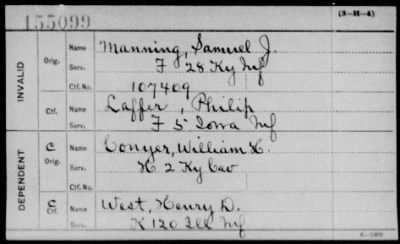 155099
(3-H-4)
INVALID
Orig. Name Manning, Samuel J.
Serv. F 28 Ky Inf
Ctf. No. 107409
Ctf. Name Laffer, Philip
Serv. F 5 Iowa Inf
DEPENDENT
C Orig. Name Conyer, William H.
Serv. H 2 Ky Cav
Ctf. No.
C Ctf. Name West, Henry D.
Serv. K 120 Ill Inf